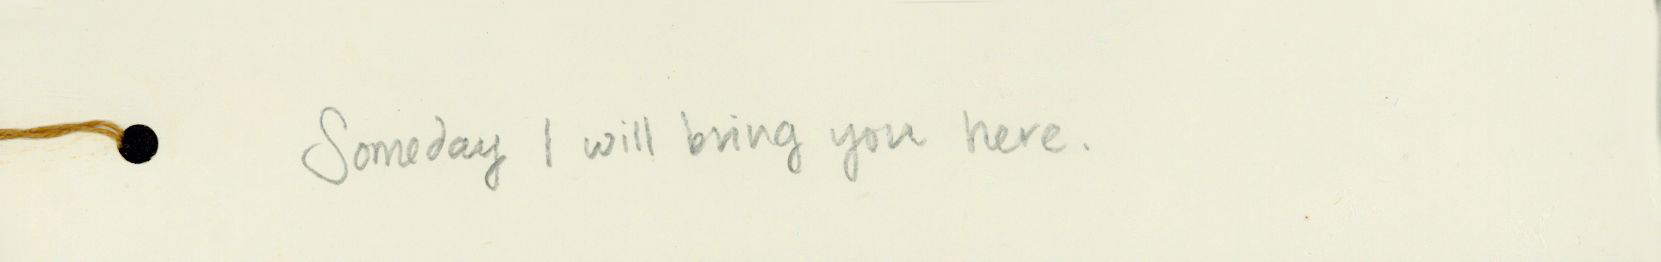 Someday I will bring you here.